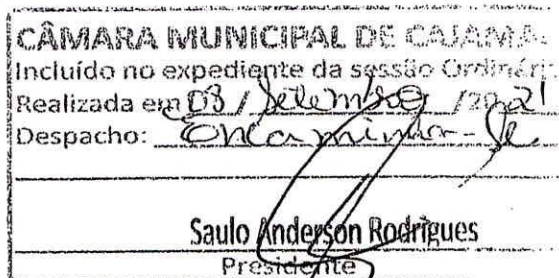 CÂMARA MUNICIPAL DE CAJAMA
Incluído no expediente da sessão Ordinári
Realizada em 03 / Setembro / 2021
Despacho: Encaminha-se
Saulo Anderson Rodrigues
Presidente